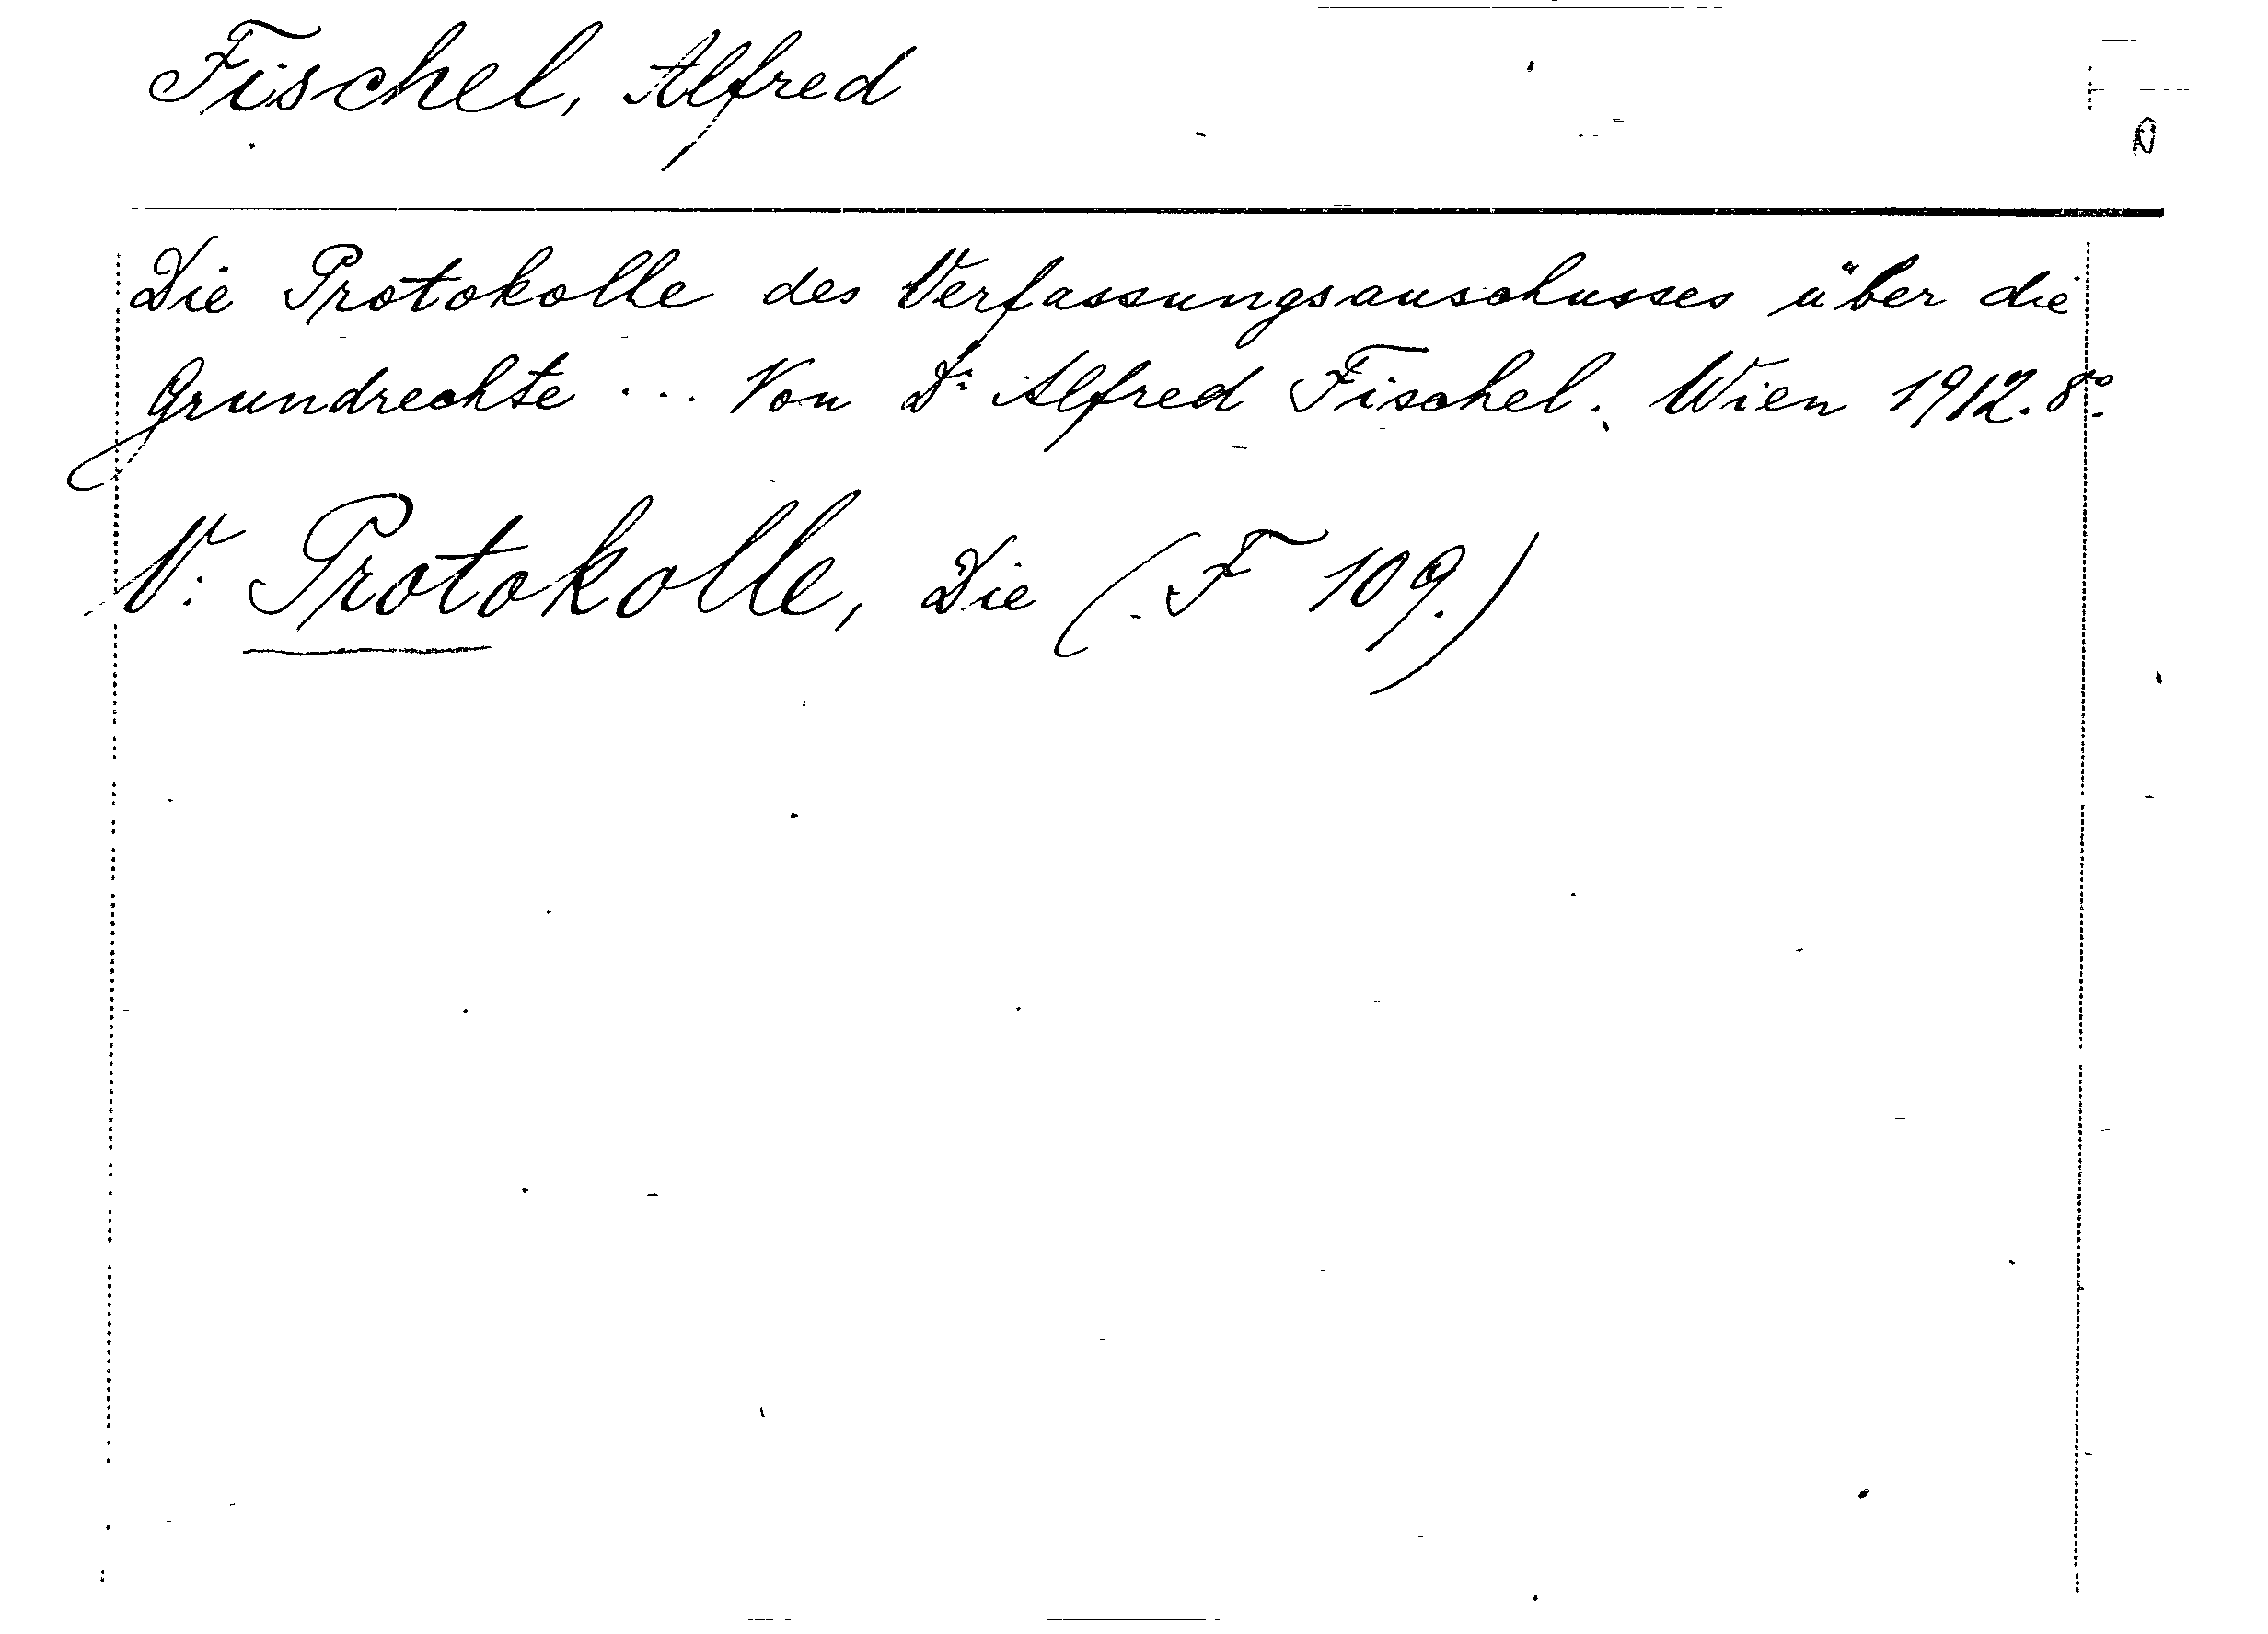 Fischel, Alfred
Die Protokolle des Verfassungsauschusses über die
Grundrechte ... Von Dr Alfred Fischel. Wien 1912. 8º.
V. Protokolle, Die (F 109.)